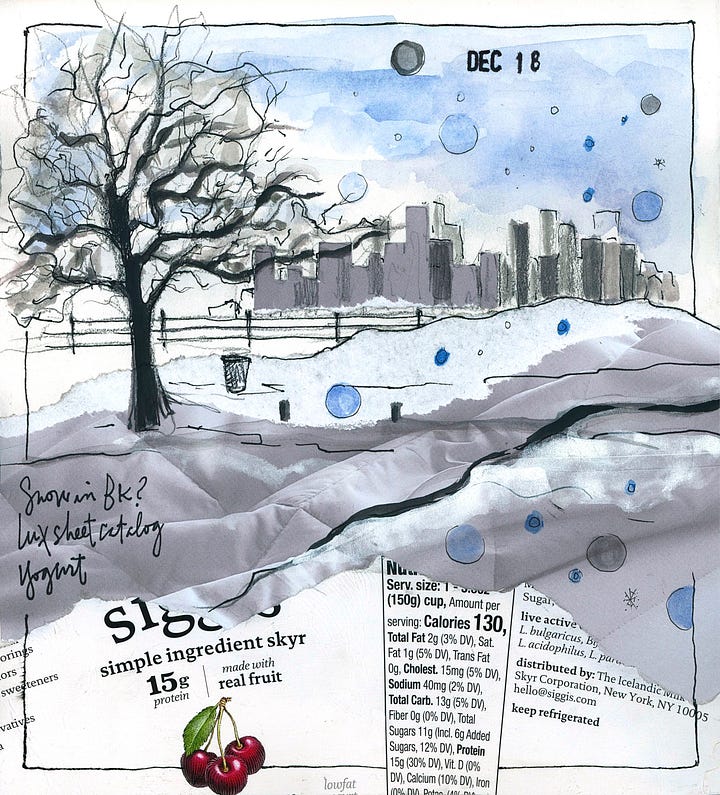 DEC 18
Snow in BK?
Lux sheet catalog
Yogurt
siggi's
simple ingredient skyr
15g
protein
made with
real fruit
lowfat
orings
ors
sweeteners
vatives
Serv. size: 1
(150g) cup, Amount per
serving: Calories 130,
Total Fat 2g (3% DV), Sat.
Fat 1g (5% DV), Trans Fat
0g, Cholest. 15mg (5% DV),
Sodium 40mg (2% DV),
Total Carb. 13g (5% DV),
Fiber 0g (0% DV), Total
Sugars 11g (Incl. 6g Added
Sugars, 12% DV), Protein
15g (30% DV), Vit. D (0%
DV), Calcium (10% DV), Iron
(0% DV), Potas. (4% DV)
Sugar,
live active
L. bulgaricus,
L. acidophilus, L.
distributed by: The Icelandic Milk
Skyr Corporation, New York, NY 10005
hello@siggis.com
keep refrigerated